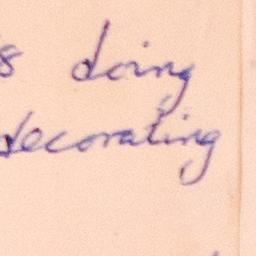 s doing
decorating